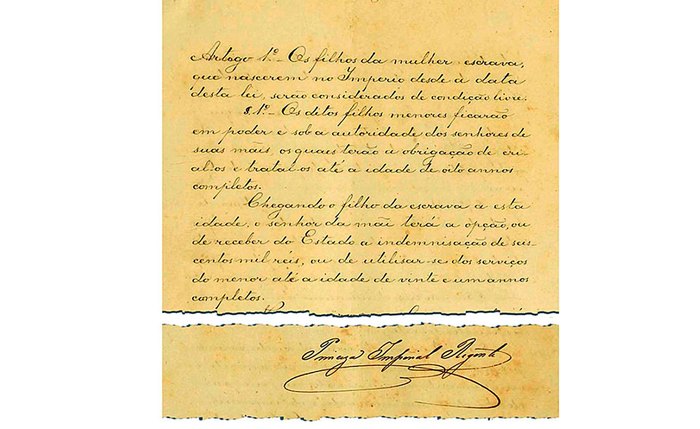 Artigo 1º- Os filhos da mulher escrava,
que nascerem no Imperio desde a data
desta lei, serão considerados de condição livre.
§.1º- Os ditos filhos menores ficarão
em poder e sob a autoridade dos senhores de
suas mãis, os quaes terão a obrigação de cri-
al-os e tratal-os até a idade de oito annos
completos.
Chegando o filho da escrava a esta
idade, o senhor da mãi terá a opção, ou
de receber do Estado a indemnisação de seis-
centos mil réis, ou de utilisar-se dos serviços
do menor até a idade de vinte e um annos
completos.
Princeza Imperial Regente